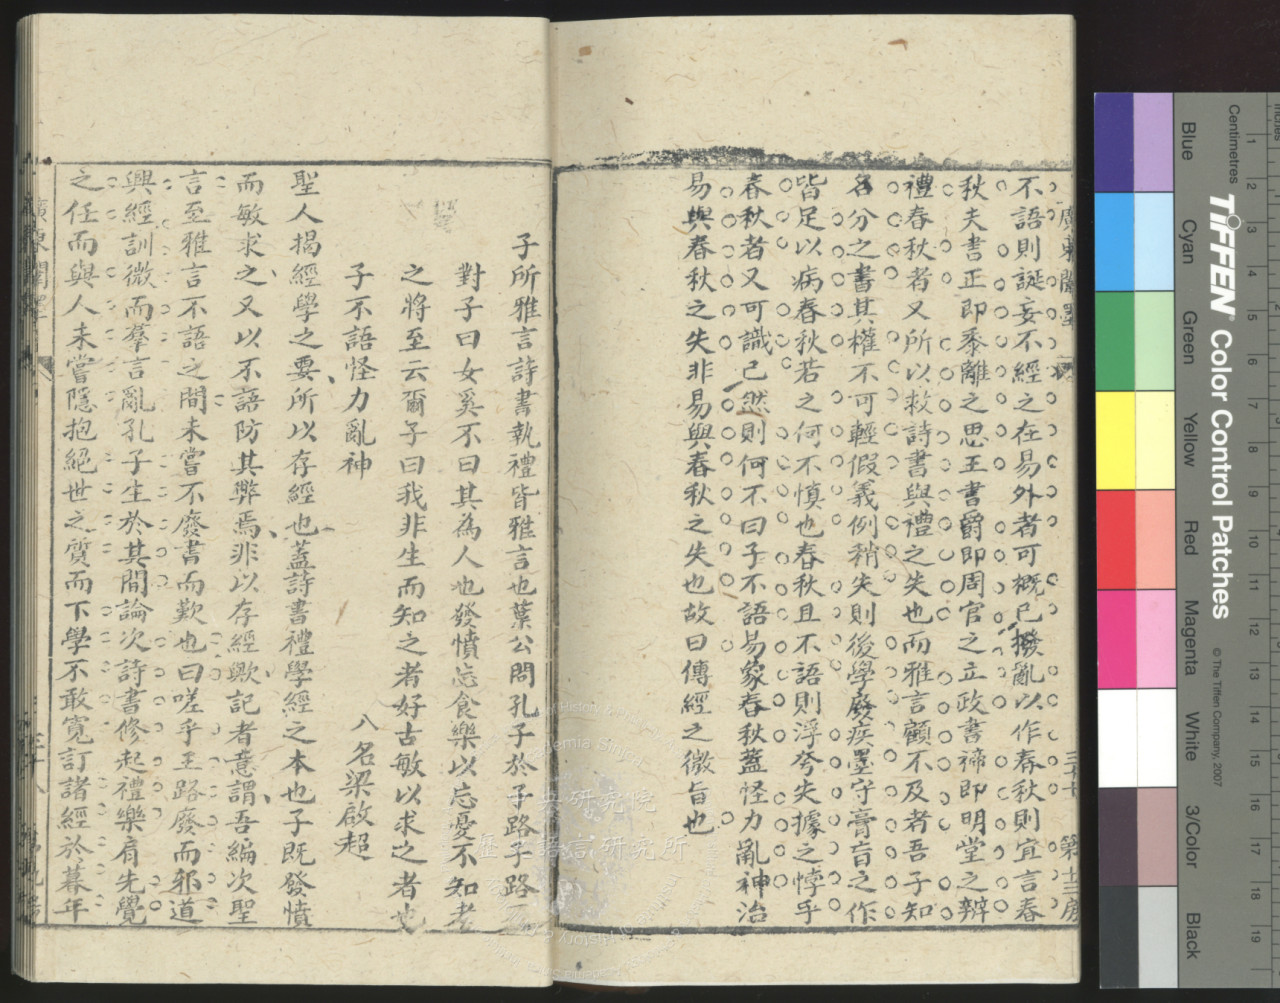 廣東闈墨
三十七
第十三房
不語則誕妄不經之在易外者可概已撥亂以作春秋則宜言春
秋夫書正即黍離之思王書爵即周官之立政書禘即明堂之辨
禮春秋者又所以救詩書與禮之失也而雅言顧不及者吾子知
名分之書其權不可輕假義例稍失則後學廢疾墨守膏肓之作
皆足以病春秋若之何不慎也春秋且不語則浮夸失據之悖乎
春秋者又可識已然則何不曰子不語易象春秋蓋怪力亂神治
易與春秋之失非易與春秋之失也故曰傳經之微旨也
子所雅言詩書執禮皆雅言也葉公問孔子於子路子路不
對子曰女奚不曰其為人也發憤忘食樂以忘憂不知老
之將至云爾子曰我非生而知之者好古敏以求之者也
子不語怪力亂神
八名梁啟超
聖人揭經學之要所以存經也蓋詩書禮學經之本也子既發憤
而敏求之又以不語防其弊焉非以存經歟記者意謂吾編次聖
言至雅言不語之間未嘗不廢書而歎也曰嗟乎王路廢而邪道
興經訓微而羣言亂孔子生於其間論次詩書修起禮樂肩先覺
之任而與人未嘗隱抱絕世之質而下學不敢寬訂諸經於暮年
廣東闈墨
Centimetres
TIFFEN® Color Control Patches
© The Tiffen Company, 2007
Blue
Cyan
Green
Yellow
Red
Magenta
White
3/Color
Black
1
2
3
4
5
6
7
8
9
10
11
12
13
14
15
16
17
18
19